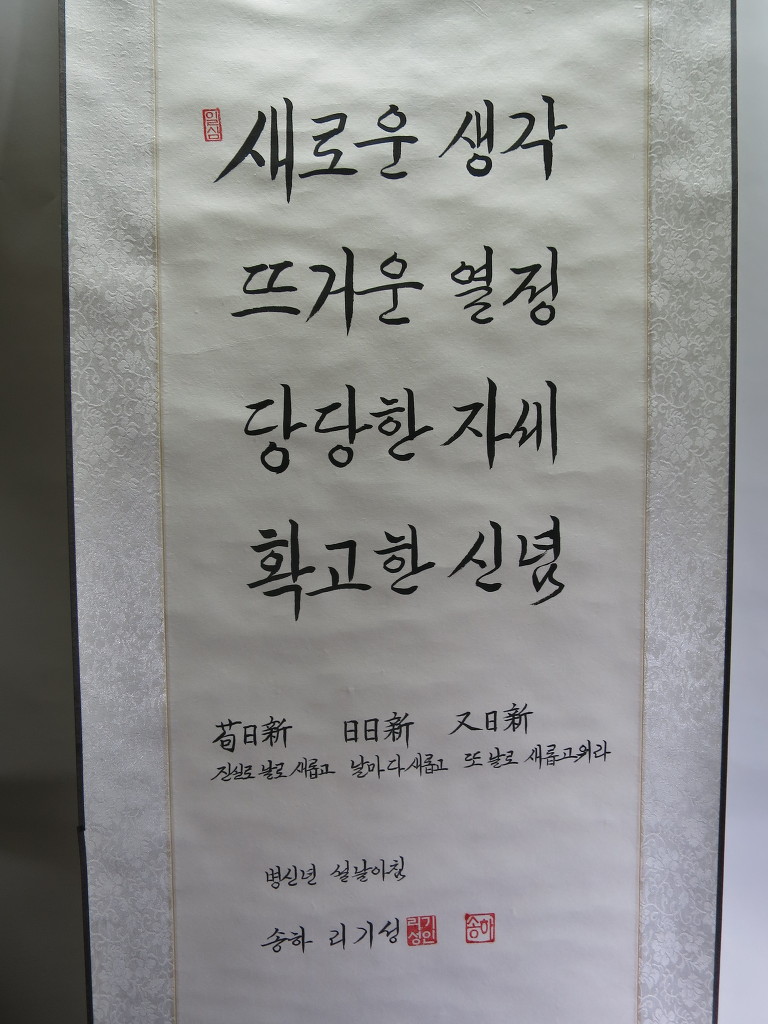 일심
새로운 생각
뜨거운 열정
당당한 자세
확고한 신념
苟日新 日日新 又日新
진실로 날로 새롭고 날마다 새롭고 또 날로 새롭고워라
병신년 설날아침
송하 리기성 리기성인 송하